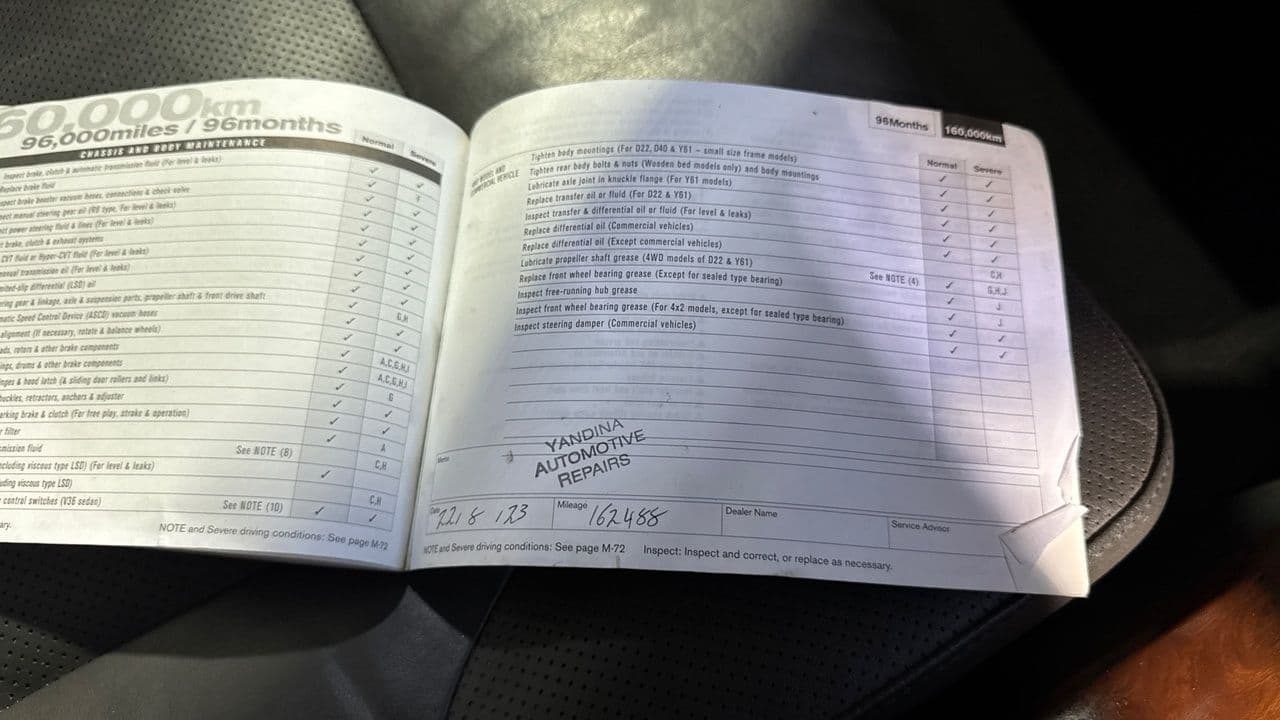 60,000km
96,000miles / 96months
CHASSIS AND BODY MAINTENANCE
Normal
Severe
Inspect brake, clutch & automatic transmission fluid (For level & leaks)
Replace brake fluid
brake booster vacuum hoses, connections & check valve
manual steering gear oil (RB type, For level & leaks)
power steering fluid & lines (For level & leaks)
brake, clutch & exhaust systems
CVT fluid or Hyper-CVT fluid (For level & leaks)
manual transmission oil (For level & leaks)
limited-slip differential (LSD) oil
gear & linkage, axle & suspension parts, propeller shaft & front drive shaft
G,H
Speed Control Device (ASCD) vacuum hoses
alignment (If necessary, rotate & balance wheels)
rotors & other brake components
A,C,G,H,I
drums & other brake components
A,C,G,H,I
& hood latch (& sliding door rollers and links)
G
buckles, retractors, anchors & adjuster
parking brake & clutch (For free play, stroke & operation)
filter
A
fluid
See NOTE (8)
C,H
viscous type LSD) (For level & leaks)
viscous type LSD)
C,H
control switches (V36 sedan)
See NOTE (10)
NOTE and Severe driving conditions: See page M-72
96Months
160,000km
Normal
Severe
MODEL AND
COMMERCIAL VEHICLE
Tighten body mountings (For D22, D40 & Y61 – small size frame models)
Tighten rear body bolts & nuts (Wooden bed models only) and body mountings
Lubricate axle joint in knuckle flange (For Y61 models)
Replace transfer oil or fluid (For D22 & Y61)
Inspect transfer & differential oil or fluid (For level & leaks)
Replace differential oil (Commercial vehicles)
Replace differential oil (Except commercial vehicles)
C,H
Lubricate propeller shaft grease (4WD models of D22 & Y61)
See NOTE (4)
G,H,J
Replace front wheel bearing grease (Except for sealed type bearing)
J
Inspect free-running hub grease
J
Inspect front wheel bearing grease (For 4x2 models, except for sealed type bearing)
Inspect steering damper (Commercial vehicles)
YANDINA
AUTOMOTIVE
REPAIRS
Memo
Date
22/8/23
Mileage
162488
Dealer Name
Service Advisor
NOTE and Severe driving conditions: See page M-72
Inspect: Inspect and correct, or replace as necessary.